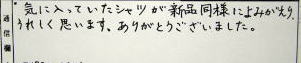 通信欄
気に入っていたシャツが新品同様によみがえり、
うれしく思います。ありがとうございました。